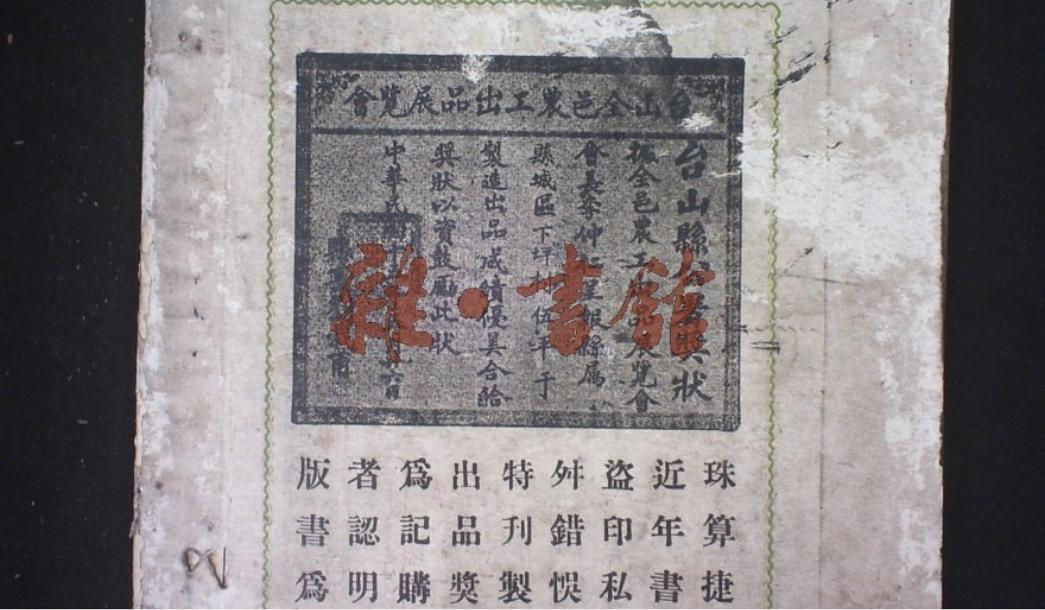 台山全邑農工出品展覽會
台山縣
全邑農工出品展覽會
會長李仲 呈報縣屬
縣城區下坪村伍平于
製造出品成績優異合給
獎狀以資鼓勵此狀
中華民國
珠算捷
近年書
盜印私
舛錯悞
特刊製
出品獎
為記購
者認明
版書為
雜·書館